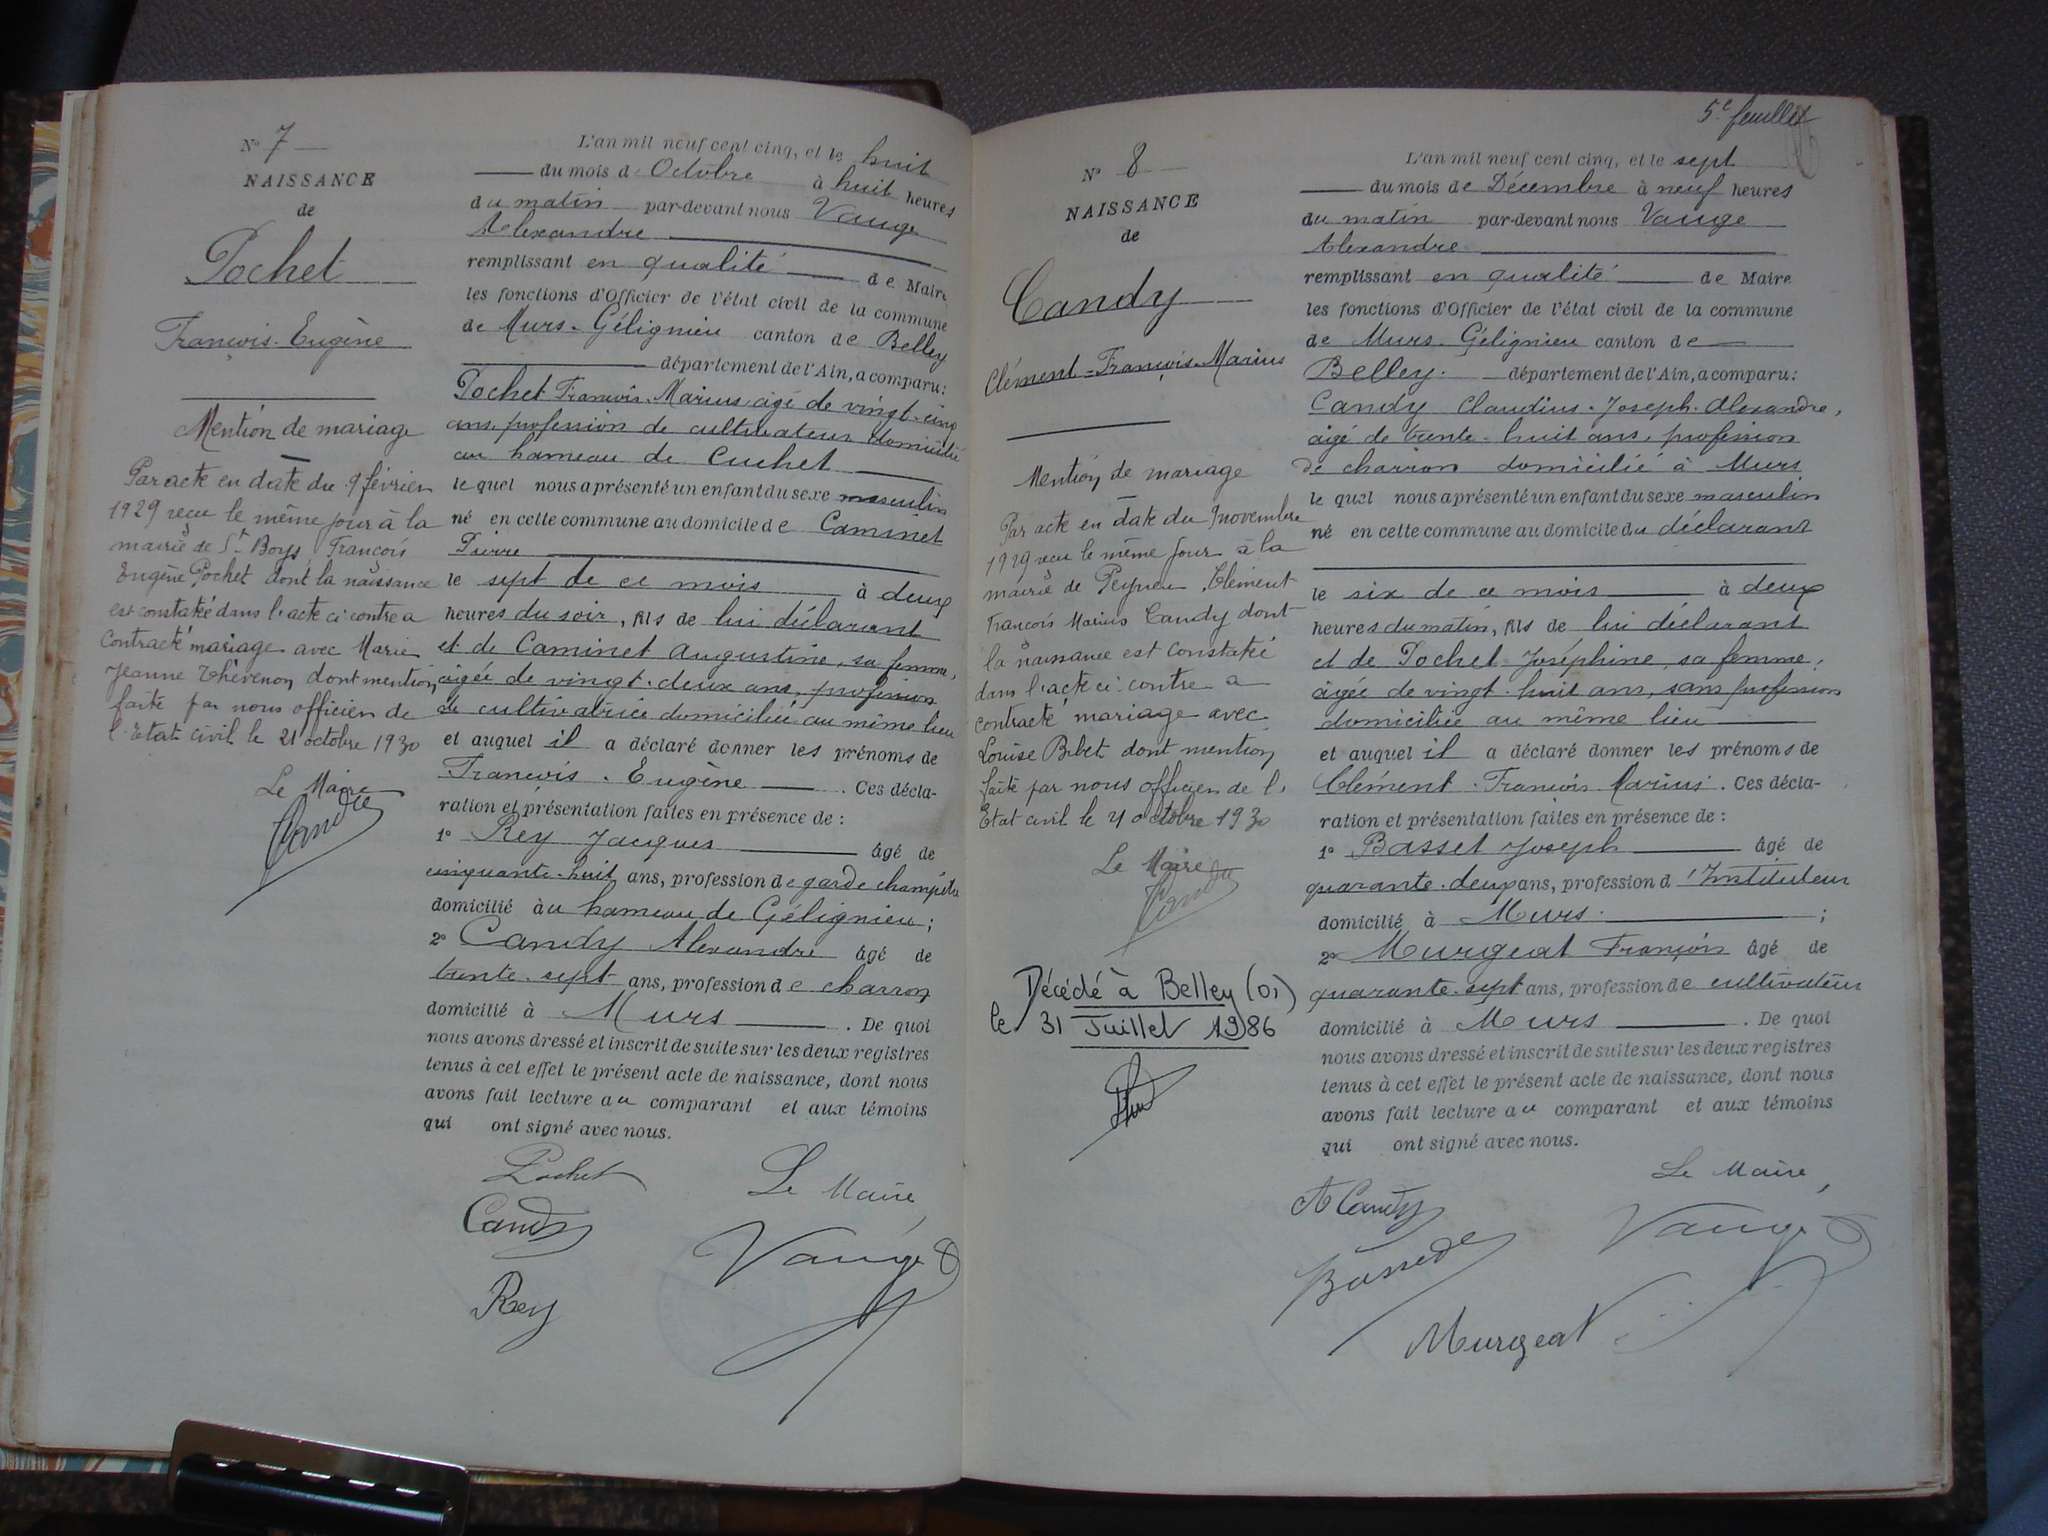 N° 7
NAISSANCE
de
Pochet
François-Eugène
Mention de mariage
Par acte en date du 9 février
1929 reçu le même jour à la
mairie de St Boys François
Eugène Pochet dont la naissance
est constatée dans l'acte ci contre a
contracté mariage avec Marie
Jeanne Thévenon dont mention
faite par nous officier de
l'Etat civil le 21 octobre 1930
Le Maire
L'an mil neuf cent cinq, et le huit
du mois de Octobre à huit heures
du matin par-devant nous Vauge
Alexandre
remplissant en qualité de Maire
les fonctions d'Officier de l'état civil de la commune
de Murs-Gélignieu canton de Belley
département de l'Ain, a comparu:
Pochet François-Marius âgé de vingt-cinq
ans, profession de cultivateur domicilié
au hameau de Cuchet
lequel nous a présenté un enfant du sexe masculin
né en cette commune au domicile de Caminet
Pierre
le sept de ce mois à deux
heures du soir, fils de lui déclarant
et de Caminet Augustine, sa femme,
âgée de vingt-deux ans, profession
de cultivatrice domiciliée au même lieu
et auquel il a déclaré donner les prénoms de
François-Eugène. Ces décla-
ration et présentation faites en présence de :
1° Rey Jacques âgé de
cinquante-huit ans, profession de garde champêtre
domicilié au hameau de Gélignieu;
2° Candy Alexandre âgé de
trente-sept ans, profession de charron
domicilié à Murs. De quoi
nous avons dressé et inscrit de suite sur les deux registres
tenus à cet effet le présent acte de naissance, dont nous
avons fait lecture au comparant et aux témoins
qui ont signé avec nous.
Pochet Le Maire,
Candy
Vauge
Rey
5e feuillet
N° 8
NAISSANCE
de
Candy
Clément-François-Marius
Mention de mariage
Par acte en date du 9 novembre
1929 reçu le même jour à la
mairie de Peyrieu, Clément
François Marius Candy dont
la naissance est constatée
dans l'acte ci-contre a
contracté mariage avec
Louise Bibet dont mention
faite par nous officier de l'
Etat civil le 21 octobre 1930
Le Maire
Décédé à Belley (01)
le 31 Juillet 1986
L'an mil neuf cent cinq, et le sept
du mois de Décembre à neuf heures
du matin par-devant nous Vauge
Alexandre
remplissant en qualité de Maire
les fonctions d'Officier de l'état civil de la commune
de Murs-Gélignieu canton de
Belley. département de l'Ain, a comparu:
Candy Claudius-Joseph-Alexandre,
âgé de trente-huit ans, profession
de charron domicilié à Murs
lequel nous a présenté un enfant du sexe masculin
né en cette commune au domicile du déclarant
le six de ce mois à deux
heures du matin, fils de lui déclarant
et de Pochet Joséphine, sa femme,
âgée de vingt-huit ans, sans profession
domiciliée au même lieu
et auquel il a déclaré donner les prénoms de
Clément-François-Marius. Ces décla-
ration et présentation faites en présence de :
1° Basset Joseph âgé de
quarante-deux ans, profession d'Instituteur
domicilié à Murs ;
2° Murgeat François âgé de
quarante-sept ans, profession de cultivateur
domicilié à Murs. De quoi
nous avons dressé et inscrit de suite sur les deux registres
tenus à cet effet le présent acte de naissance, dont nous
avons fait lecture au comparant et aux témoins
qui ont signé avec nous.
Le Maire,
A Candy
Vauge
Basset
Murgeat